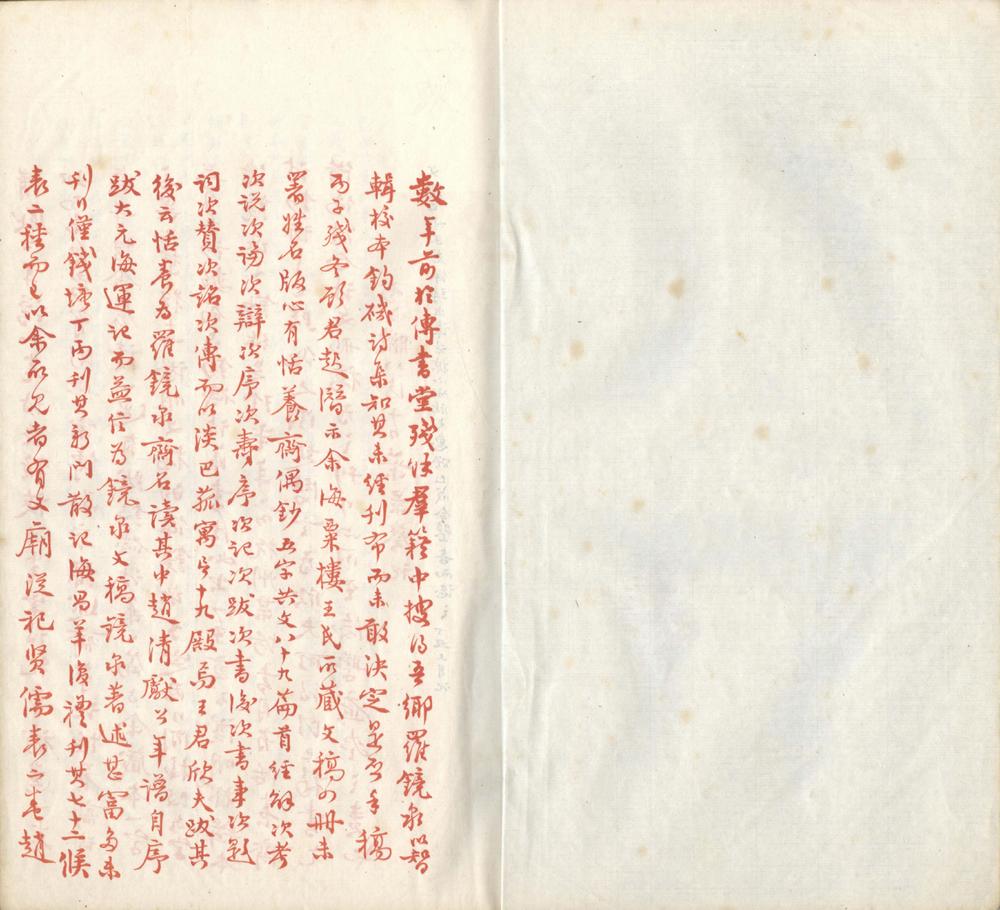 數年前於傳書堂殘佚羣籍中搜得吾鄉羅鏡泉以智
輯校本釣磯詩集知其未經刊布而未敢決定是否手稿
丙子殘冬顧君起潛示余海粟樓王氏所藏文稿四冊未
署姓名版心有恬養齋偶鈔五字共文八十九篇首經解次考
次說次論次辯次序次壽序次記次跋次書後次書事次題
詞次贊次銘次傳而以淡巴菰寓言十九殿焉王君欣夫跋其
後云恬養為羅鏡泉齋名讀其中趙清獻公年譜自序
跋大元海運記而益信為鏡泉文稿鏡泉著述甚富多未
刊行僅錢塘丁丙刊其新門散記海昌羊復禮刊其七十二候
表二種而已以余所見者有文廟從祀賢儒表二卷趙